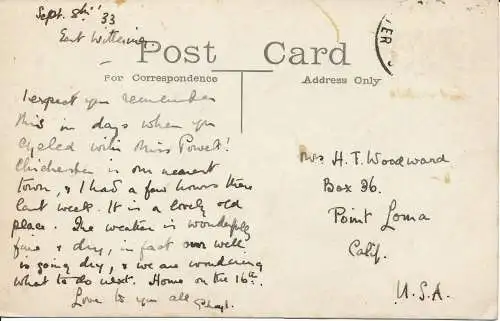 Sept. 8th '33
East Wittering.
Post Card
For Correspondence
Address Only
I expect you remember
this in days when you
cycled with Miss Powell!
Chichester is our nearest
town, & I had a few hours there
last week. It is a lovely old
place. The weather is wonderfully
fine & dry, in fact our well
is going dry, & we are wondering
what to do next. Home on the 16th.
Love to you all
Mrs H. T. Woodward
Box 36.
Point Loma
Calif.
U.S.A.